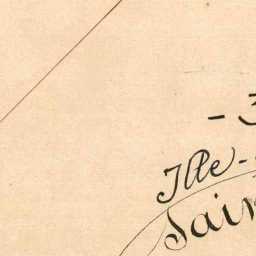 - 3
Ille-
Sain